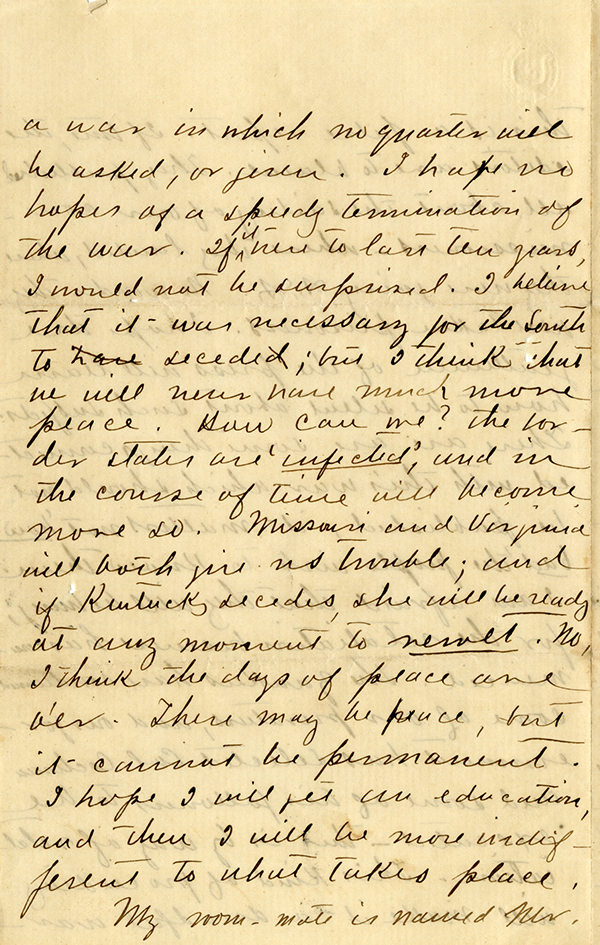 a war in which no quarter will
be asked, or given. I have no
hopes of a speedy termination of
the war. If it were to last ten years,
I would not be surprized. I believe
that it was necessary for the South
to have seceded; but I think that
we will never have much more
peace. How can we? the bor-
der states are 'infected', and in
the course of time will become
more so. Missouri and Virginia
will both give us trouble; and
if Kentucky secedes, she will be ready
at any moment to revolt. No,
I think the days of peace are
o'er. There may be peace, but
it cannot be permanent.
I hope I will get an education,
and then I will be more indif-
ferent to what takes place.
My room-mate is named Mr.